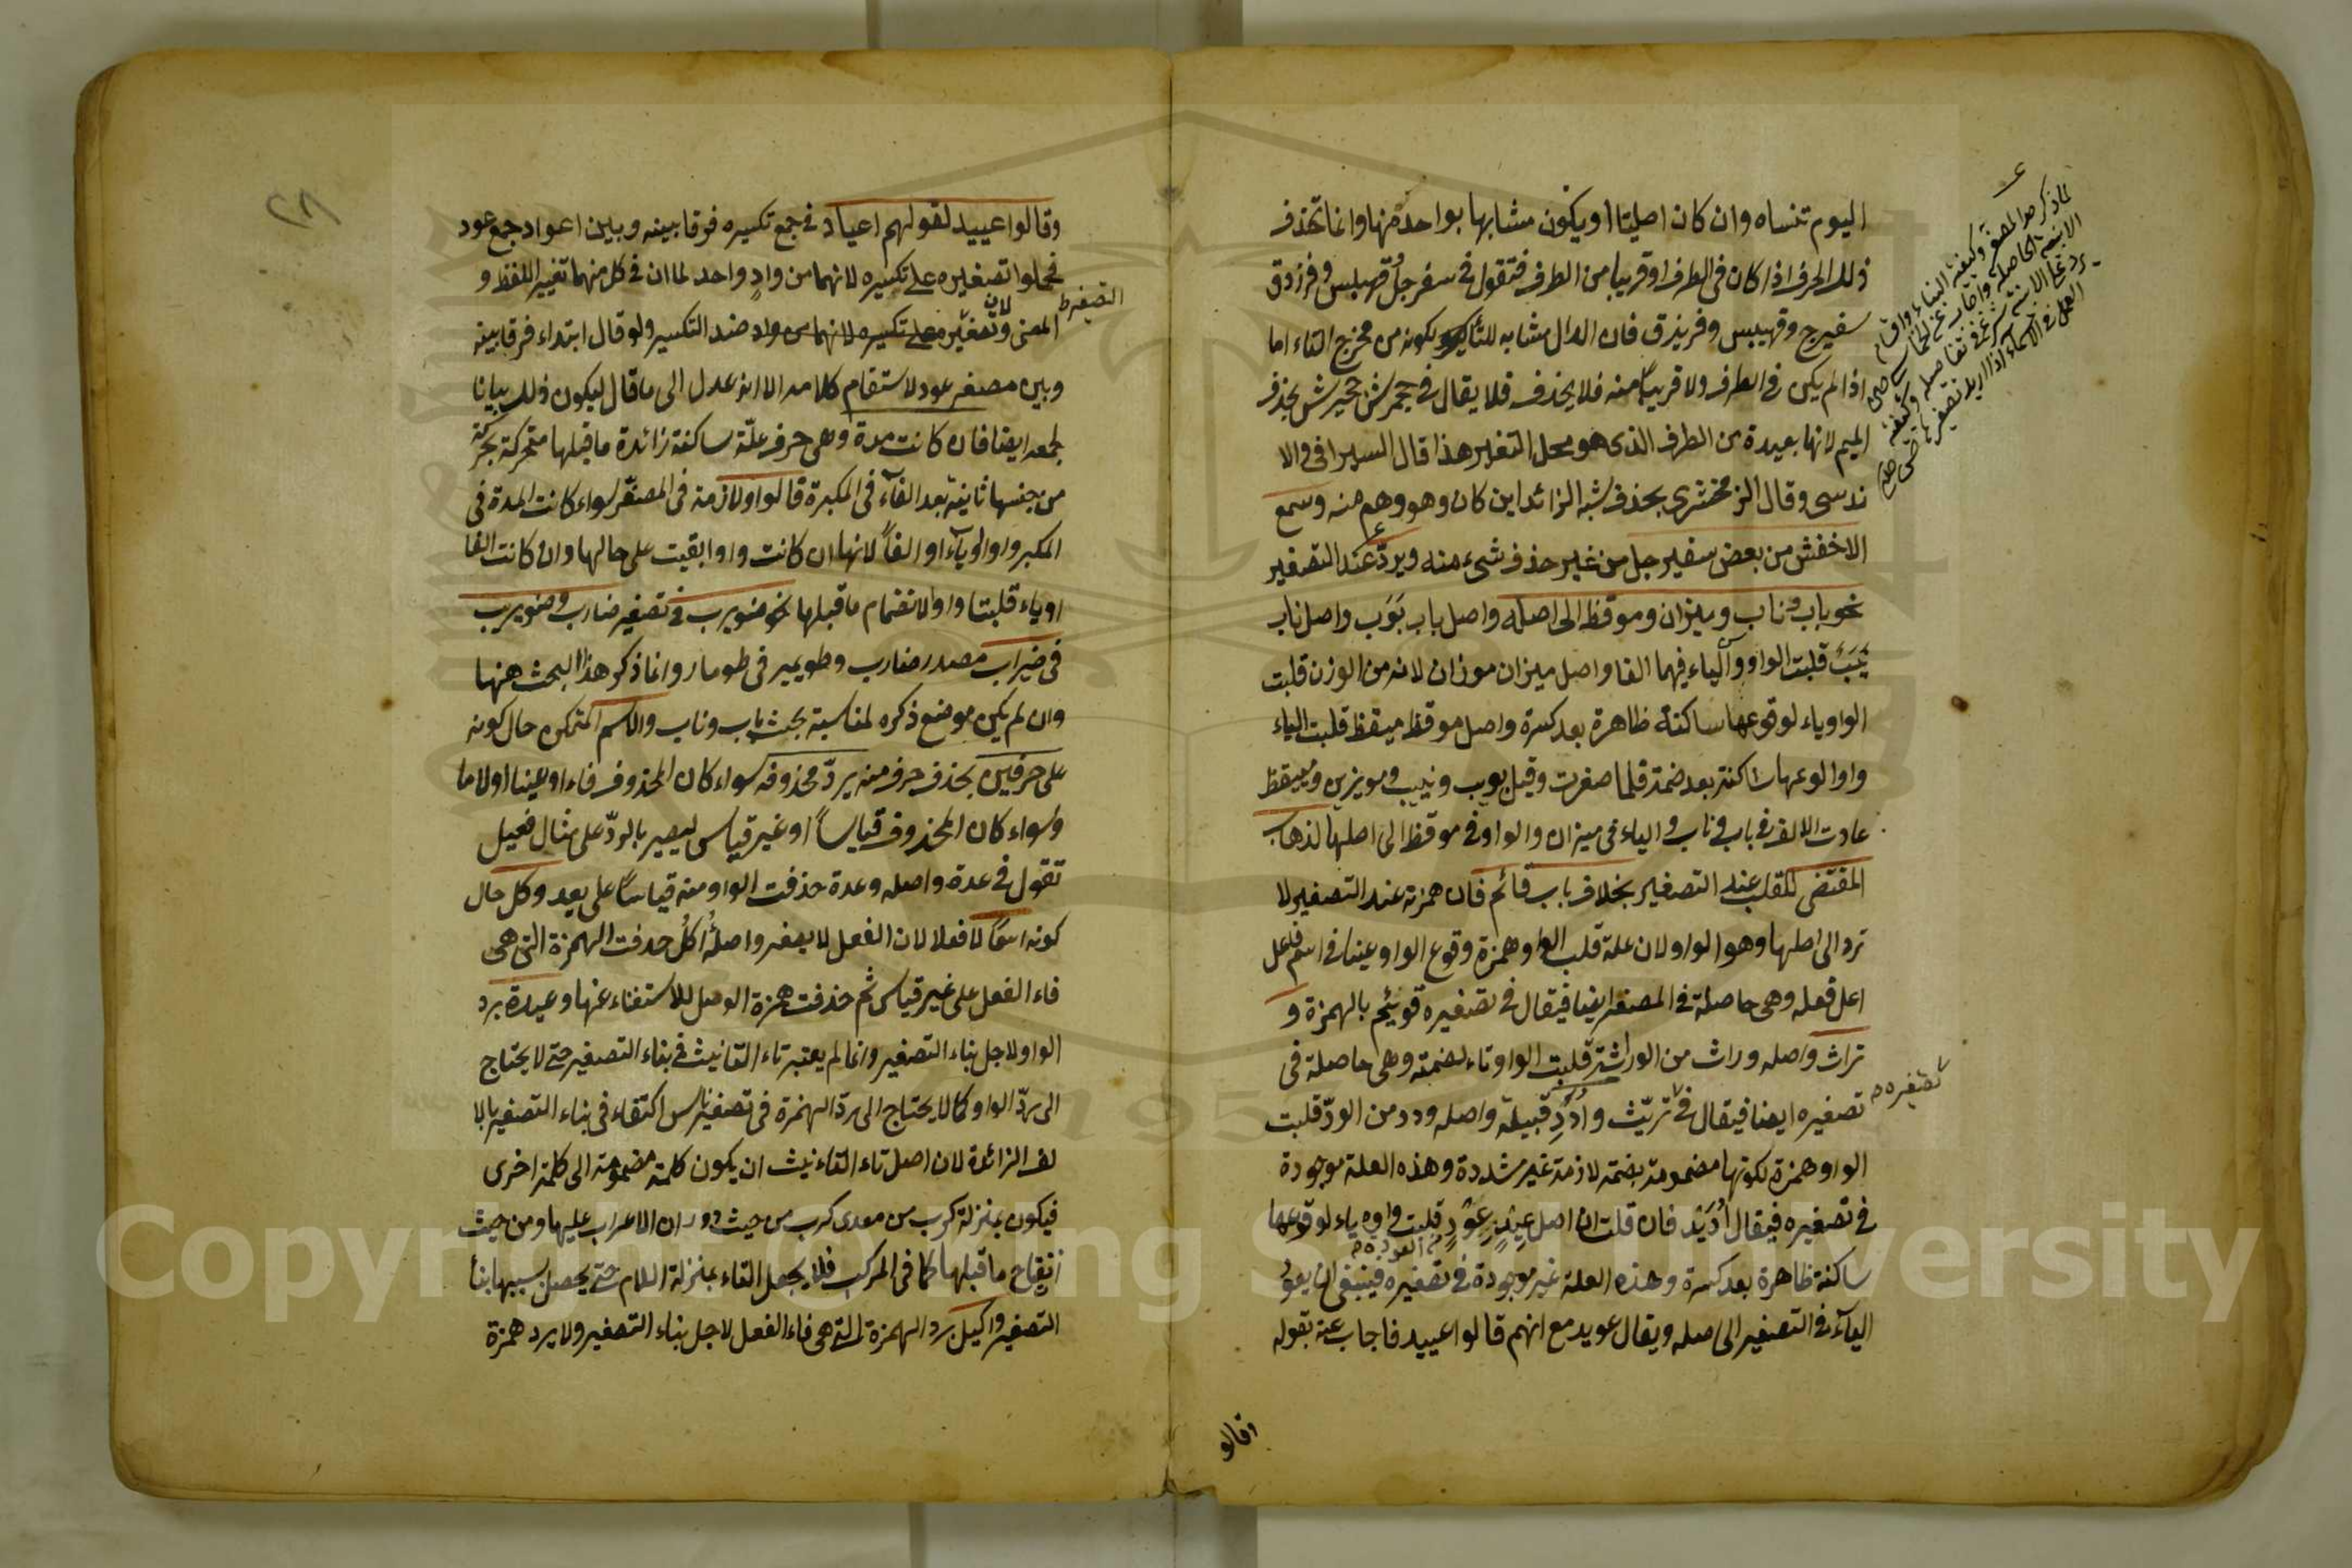 اليوم تنساه وان كان اصليتا او يكون مشابها بواحد منها وانما تحذف
ذلك الحرف اذا كان فى الطرف او قريبا من الطرف فتقول فى سفرجل وقهبلس وفرزدق
سفيرج وقهيبس وفريزق فان الدال مشابه للتاء لكونه من مخرج التاء اما
اذا لم يكن فى الطرف ولا قريبا منه فلا يحذف فلا يقال فى جحمرش جحيرش بحذف
الميم لانها بعيدة من الطرف الذى هو محل التغير هذا قال السيرافى والا
ندسى وقال الزمخشرى بحذف شبه الزائد اين كان وهو وهم منه وسمع
الاخفش من بعض سفيرجل من غير حذف شىء منه ويردّ عند التصغير
نحو باب وناب وميزان وموقظ الى اصله واصل باب بَوَب واصل ناب
نَيَبَ قلبت الواو والياء فيهما الفا واصل ميزان موزان لانه من الوزن قلبت
الواو ياء لوقوعها ساكنة ظاهرة بعد كسرة واصل موقظ ميقظ قلبت الياء
واوا لوقوعها ساكنة بعد ضمة فلما صغرت وقيل بويب ونييب ومويزين ومييقظ
عادت الالف فى باب وناب والياء فى ميزان والواو فى موقظ الى اصلها لذهاب
المقتضى للقلب عند التصغير بخلاف باب قائم فان همزته عند التصغير لا
ترد الى اصلها وهو الواو لان علة قلب الواو همزة وقوع الواو عينا فى اسم فاعل
اعل فعله وهى حاصلة فى المصغر ايضا فيقال فى تصغيره قويئم بالهمزة و
تراث واصله وراث من الوراثة قلبت الواو تاء لضمته وهى حاصلة فى
تصغيره ايضا فيقال فى تريّث وأدَدِ قبيلة واصله ودد من الودّ قلبت
تصغيره
الواو همزة لكونها مضمومة بضمة لازمة غير مشددة وهذه العلة موجودة
فى تصغيره فيقال أُدَيْد فان قلت ان اصل عيد عود قلبت واوه ياء لوقوعها
ساكنة ظاهرة بعد كسرة وهذه العلة غير موجودة فى تصغيره فينبغى ان يعود
الياء فى التصغير الى اصله ويقال عويد مع انهم قالوا عييد فاجاب عنه بقوله
وقالو
٢٨
وقالوا عييد لقولهم اعياد فى جمع تكسيره فرقا بينه وبين اعواد جمع عود
فحملوا تصغيره على تكسيره لانهما من وادٍ واحد لما ان فى كل منهما تغيير اللفظ و
المعنى وتصغيره على تكسيره لانهما من واد ضد التكسير ولو قال ابتداء فرقا بينه
وبين مصغر عود لاستقام كلامه الا انه عدل الى ما قال ليكون ذلك بيانا
لجمعه ايضا فان كانت مدة وهى حرف علّة ساكنة زائدة ما قبلها متحركة بحركة
من جنسها ثانية بعد الفاء فى المكبرة قالوا ولازمة فى المصغّر سواء كانت المدة فى
المكبر واوا او ياء او الفاً لانها ان كانت واوا بقيت على حالها وان كانت الفا
او ياء قلبتا واوا لانضمام ما قبلها نحو ضويرب فى تصغير ضارب وضويرب
فى ضيراب مصدر ضارب وطويمير فى طومار وانما ذكر هذا البحث ههنا
وان لم يكن موضع ذكره لمناسبة بحث باب وناب والاسم المتمكن حال كونه
على حرفين بحذف حرف منه يردّ محذوفه سواء كان المحذوف فاء او عينا او لاما
وسواء كان المحذوف قياساً او غير قياس ليصير بالردّ على مثال فعيل
تقول فى عدة واصله وعدة حذفت الواو منه قياسا على يعد وكل حال
كونه اسما لا فعلا لان الفعل لا يصغر واصله أُأكُل حذفت الهمزة التى هى
فاء الفعل على غير قياس ثم حذفت همزة الوصل للاستغناء عنها وعيدة برد
الواو لاجل بناء التصغير وانما لم يعتبر تاء التانيث فى بناء التصغير حتى لا يحتاج
الى ردّ الواو كما لا يحتاج الى ردّ الهمزة فى تصغير ناس اكتفاء فى بناء التصغير بالا
لف الزائدة لان اصل تاء التانيث ان يكون كلمة مضمومة الى كلمة اخرى
فيكون بمنزلة كرب من معدى كرب من حيث دوران الاعراب عليها ومن حيث
انفتاح ما قبلها كما فى المركب فلا يجعل التاء بمنزلة اللام حتى يحصل بسببها بناء
التصغير واكيل برد الهمزة التى هى فاء الفعل لاجل بناء التصغير ولا يرد همزة
Copyright © King Saud University